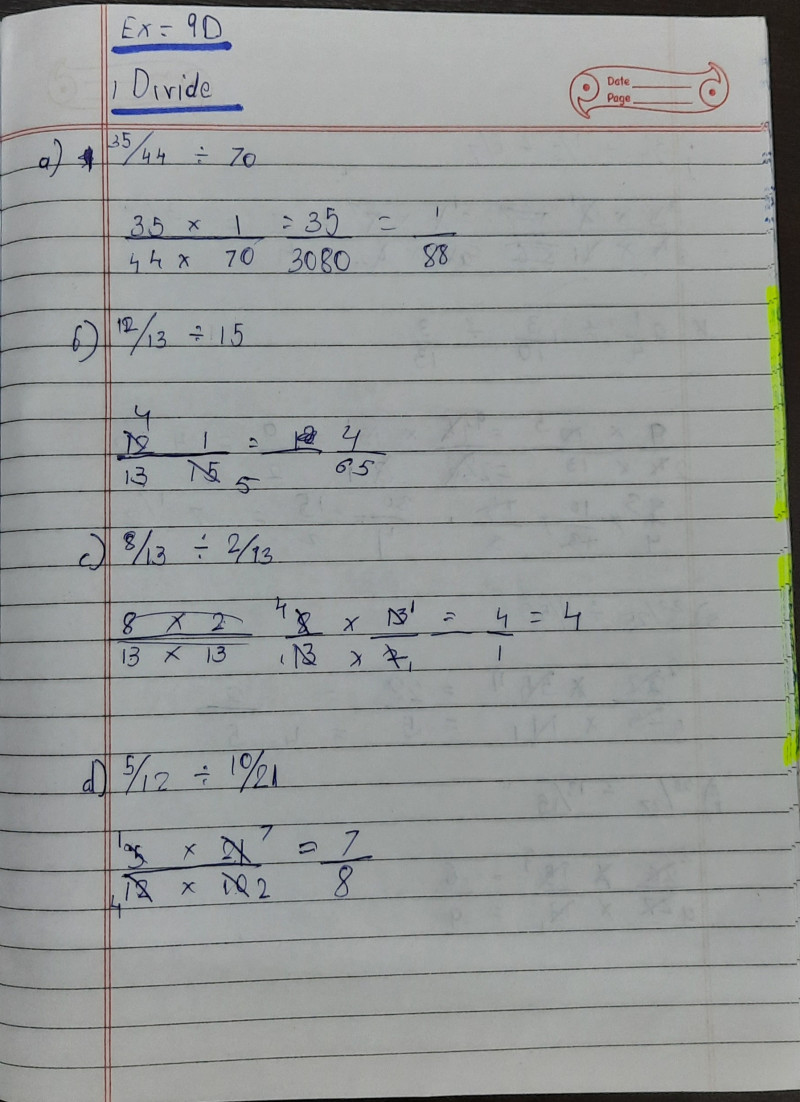 Ex = 9D
1 Divide
Date
Page
a) 35/44 ÷ 70
35 × 1 = 35 = 1
44 × 70 3080 88
b) 12/13 ÷ 15
4
12 1 = 4
13 15 5 65
c) 8/13 ÷ 2/13
8 × 2 4 8 × 13 1 = 4 = 4
13 × 13 1 13 × 2 1 1
d) 5/12 ÷ 10/21
1 5 × 21 7 = 7
4 12 × 10 2 8